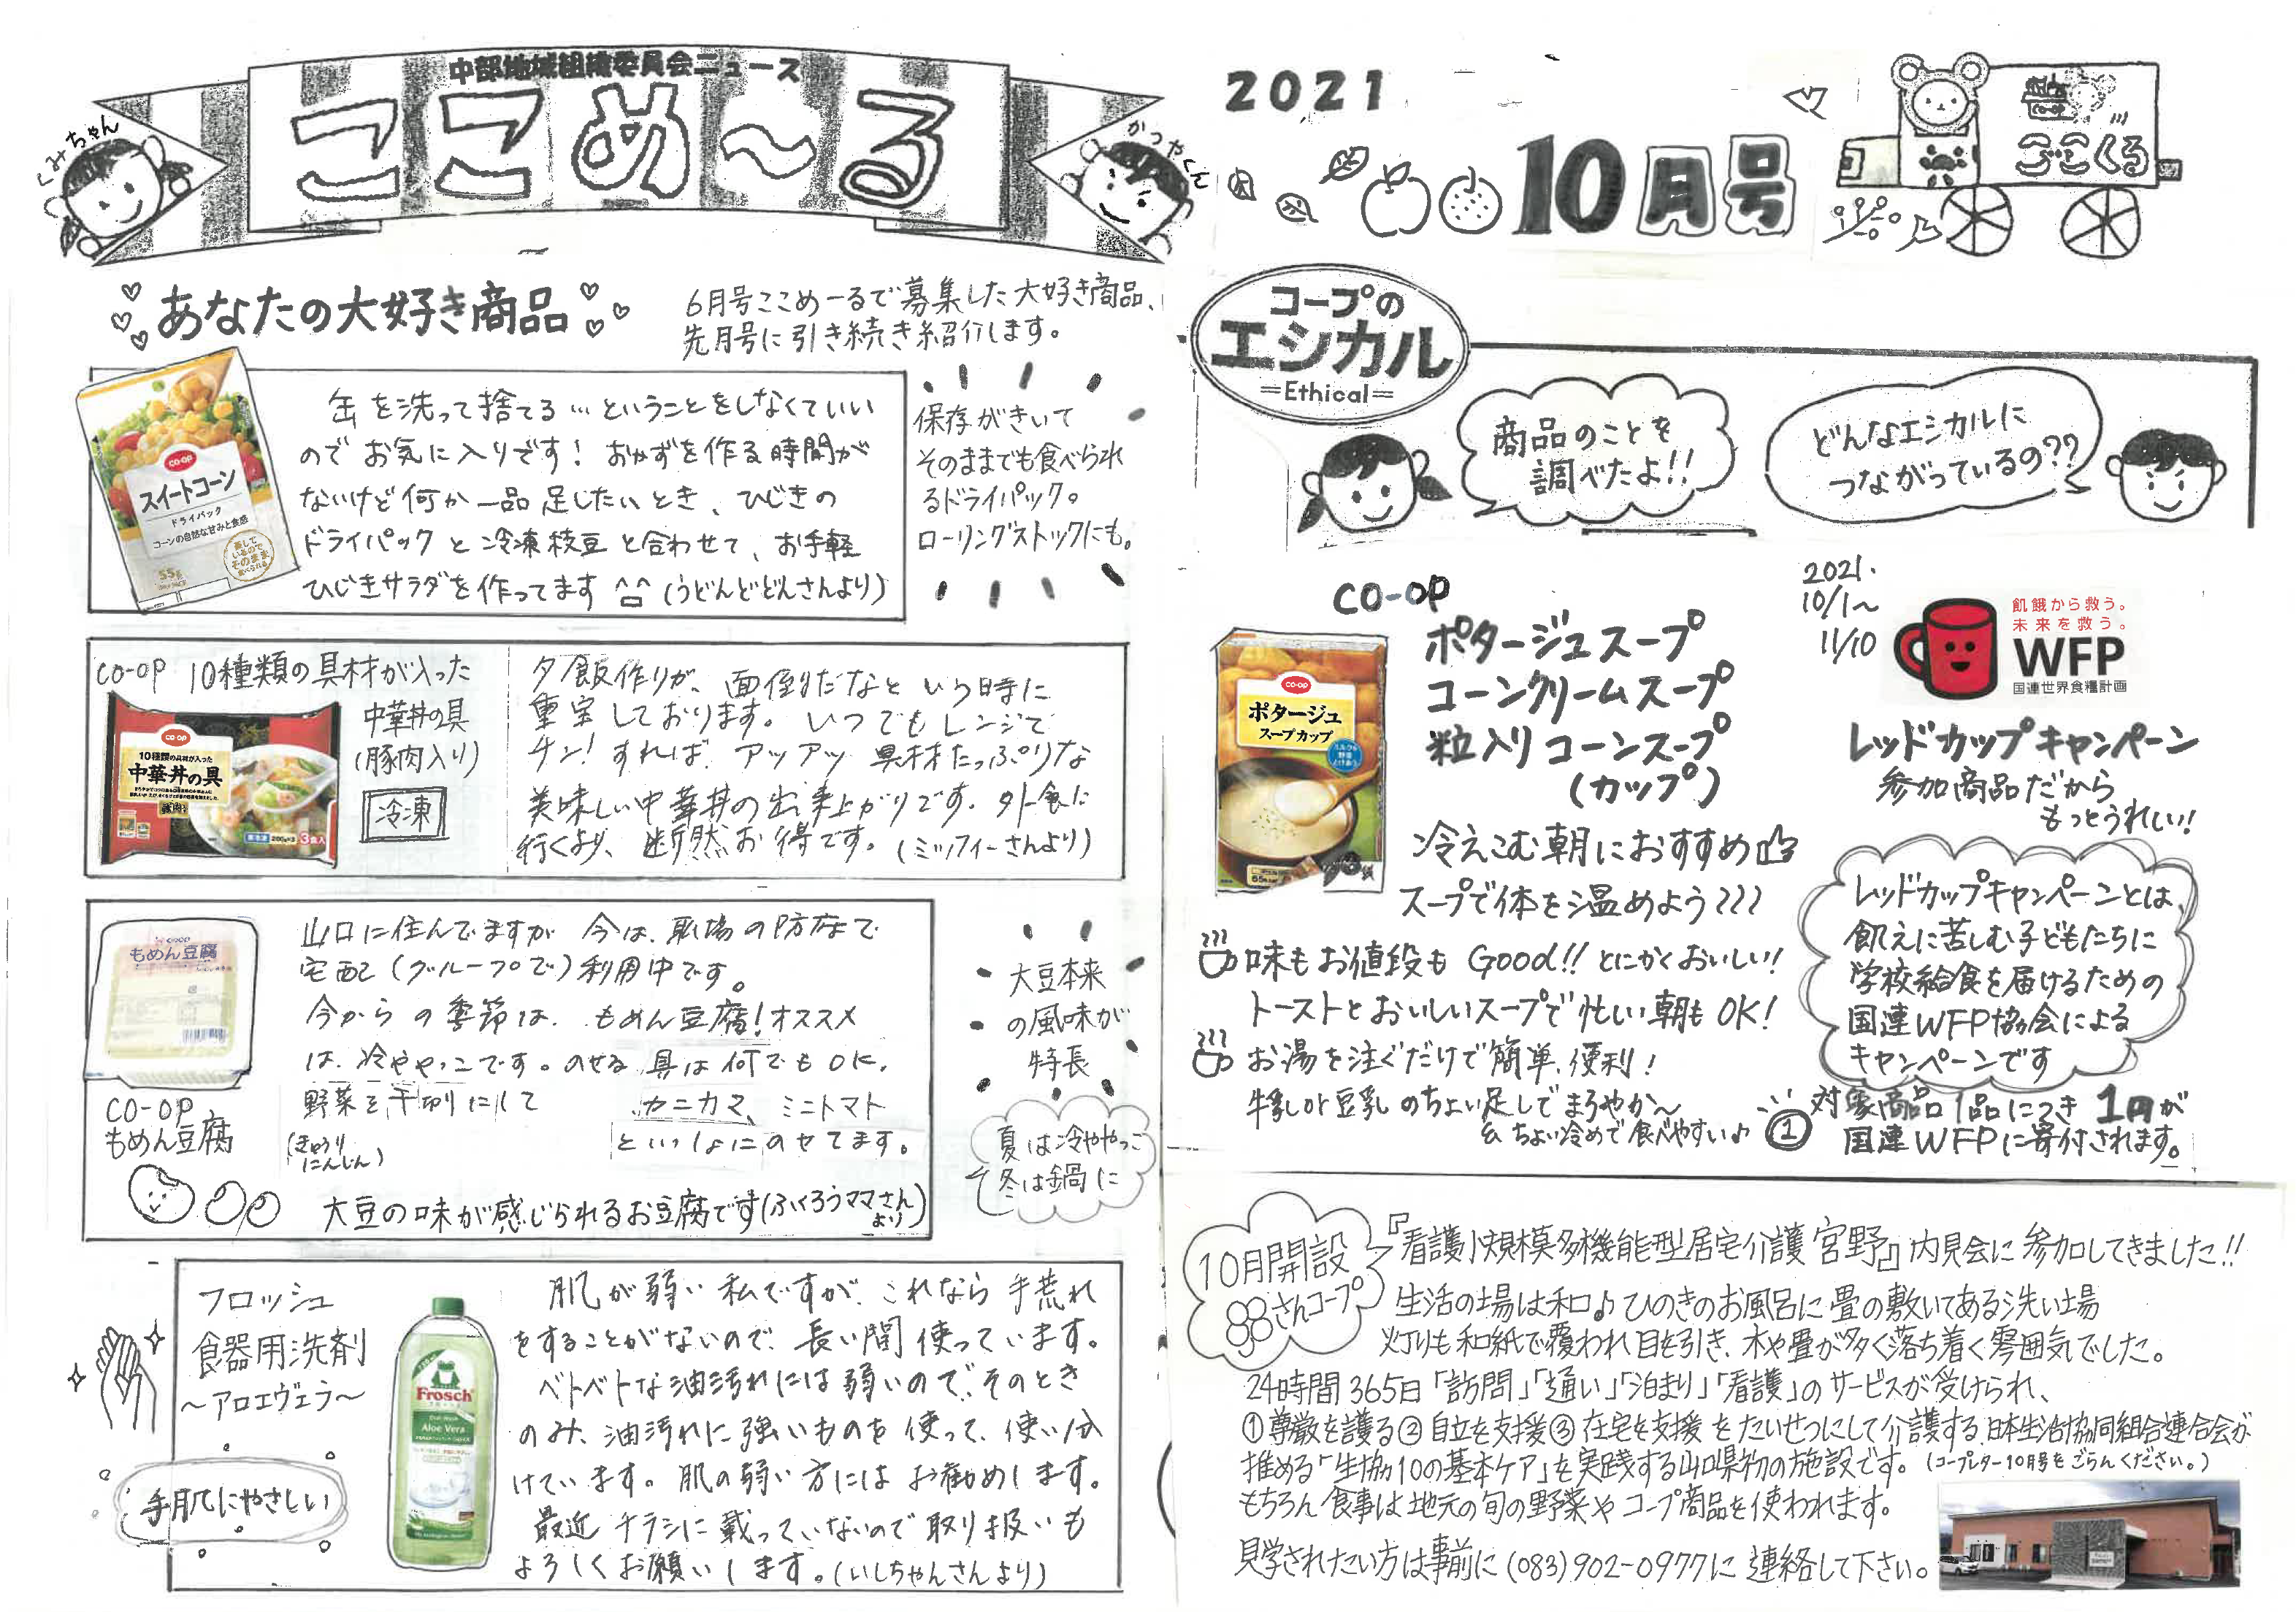 中部地域組織委員会ニュース
ここめ〜る
くみちゃん
かつやくん
2021
10月号
ここくる
あなたの大好き商品
6月号ここめーるで募集した大好き商品、
先月号に引き続き紹介します。
co-op
スイートコーン
ドライパック
コーンの自然な甘みと食感
蒸して
いるので
そのまま
食べられる
55g
缶を洗って捨てる…ということをしなくていい
のでお気に入りです！おかずを作る時間が
ないけど何か一品足したいとき、ひじきの
ドライパックと冷凍枝豆と合わせて、お手軽
ひじきサラダを作ってます (うどんどどんさんより)
保存がきいて
そのままでも食べられ
るドライパック。
ローリングストックにも。
CO-OP 10種類の具材が入った
中華丼の具
(豚肉入り)
冷凍
co-op
10種類の具材が入った
中華丼の具
3食入
夕飯作りが、面倒だなという時に
重宝しております。いつでもレンジで
チン！すれば、アツアツ具材たっぷりな
美味しい中華丼の出来上がりです。外食に
行くより、断然お得です。(ミッフィーさんより)
co-op
もめん豆腐
CO-OP
もめん豆腐
山口に住んでますが今は、職場の防府で
宅配(グループで)利用中です。
今からの季節は、もめん豆腐！オススメ
は、冷ややっこです。のせる具は何でもOK。
野菜を千切りにして カニカマ、ミニトマト
(きゅうり
にんじん)
といっしょにのせてます。
大豆の味が感じられるお豆腐です(ふくろうママさん
より)
大豆本来
の風味が
特長
夏は冷ややっこ
冬は鍋に
フロッシュ
食器用洗剤
〜アロエヴェラ〜
手肌にやさしい
Frosch
Aloe Vera
肌が弱い私ですが、これなら手荒れ
をすることがないので、長い間使っています。
ベトベトな油汚れには弱いので、そのとき
のみ、油汚れに強いものを使って、使い分
けています。肌の弱い方にはお勧めします。
最近チラシに載っていないので取り扱いも
よろしくお願いします。(いしちゃんさんより)
コープの
エシカル
=Ethical=
商品のことを
調べたよ!!
どんなエシカルに
つながっているの??
CO-OP
ポタージュスープ
コーンクリームスープ
粒入りコーンスープ
(カップ)
co-op
ポタージュ
スープカップ
冷えこむ朝におすすめ
スープで体を温めよう
味もお値段もGood!! とにかくおいしい!
トーストとおいしいスープで忙しい朝もOK!
お湯を注ぐだけで簡単、便利!
牛乳or豆乳のちょい足しでまろやか〜
& ちょい冷めで食べやすい♪
2021.
10/1〜
11/10
飢餓から救う。
未来を救う。
WFP
国連世界食糧計画
レッドカップキャンペーン
参加商品だから
もっとうれしい!
レッドカップキャンペーンとは、
飢えに苦しむ子どもたちに
学校給食を届けるための
国連WFP協会による
キャンペーンです
① 対象商品1品につき1円が
国連WFPに寄付されます。
10月開設
さんコープ
『看護小規模多機能型居宅介護 宮野』内見会に参加してきました!!
生活の場は和♪ひのきのお風呂に畳の敷いてある洗い場
灯りも和紙で覆われ目を引き、木や畳が多く落ち着く雰囲気でした。
24時間365日「訪問」「通い」「泊まり」「看護」のサービスが受けられ、
①尊厳を護る②自立を支援③在宅を支援をたいせつにして介護する日本生活協同組合連合会が
推める「生協10の基本ケア」を実践する山口県初の施設です。(コープレター10月号をごらんください。)
もちろん食事は地元の旬の野菜やコープ商品を使われます。
見学されたい方は事前に(083)902-0977に連絡して下さい。